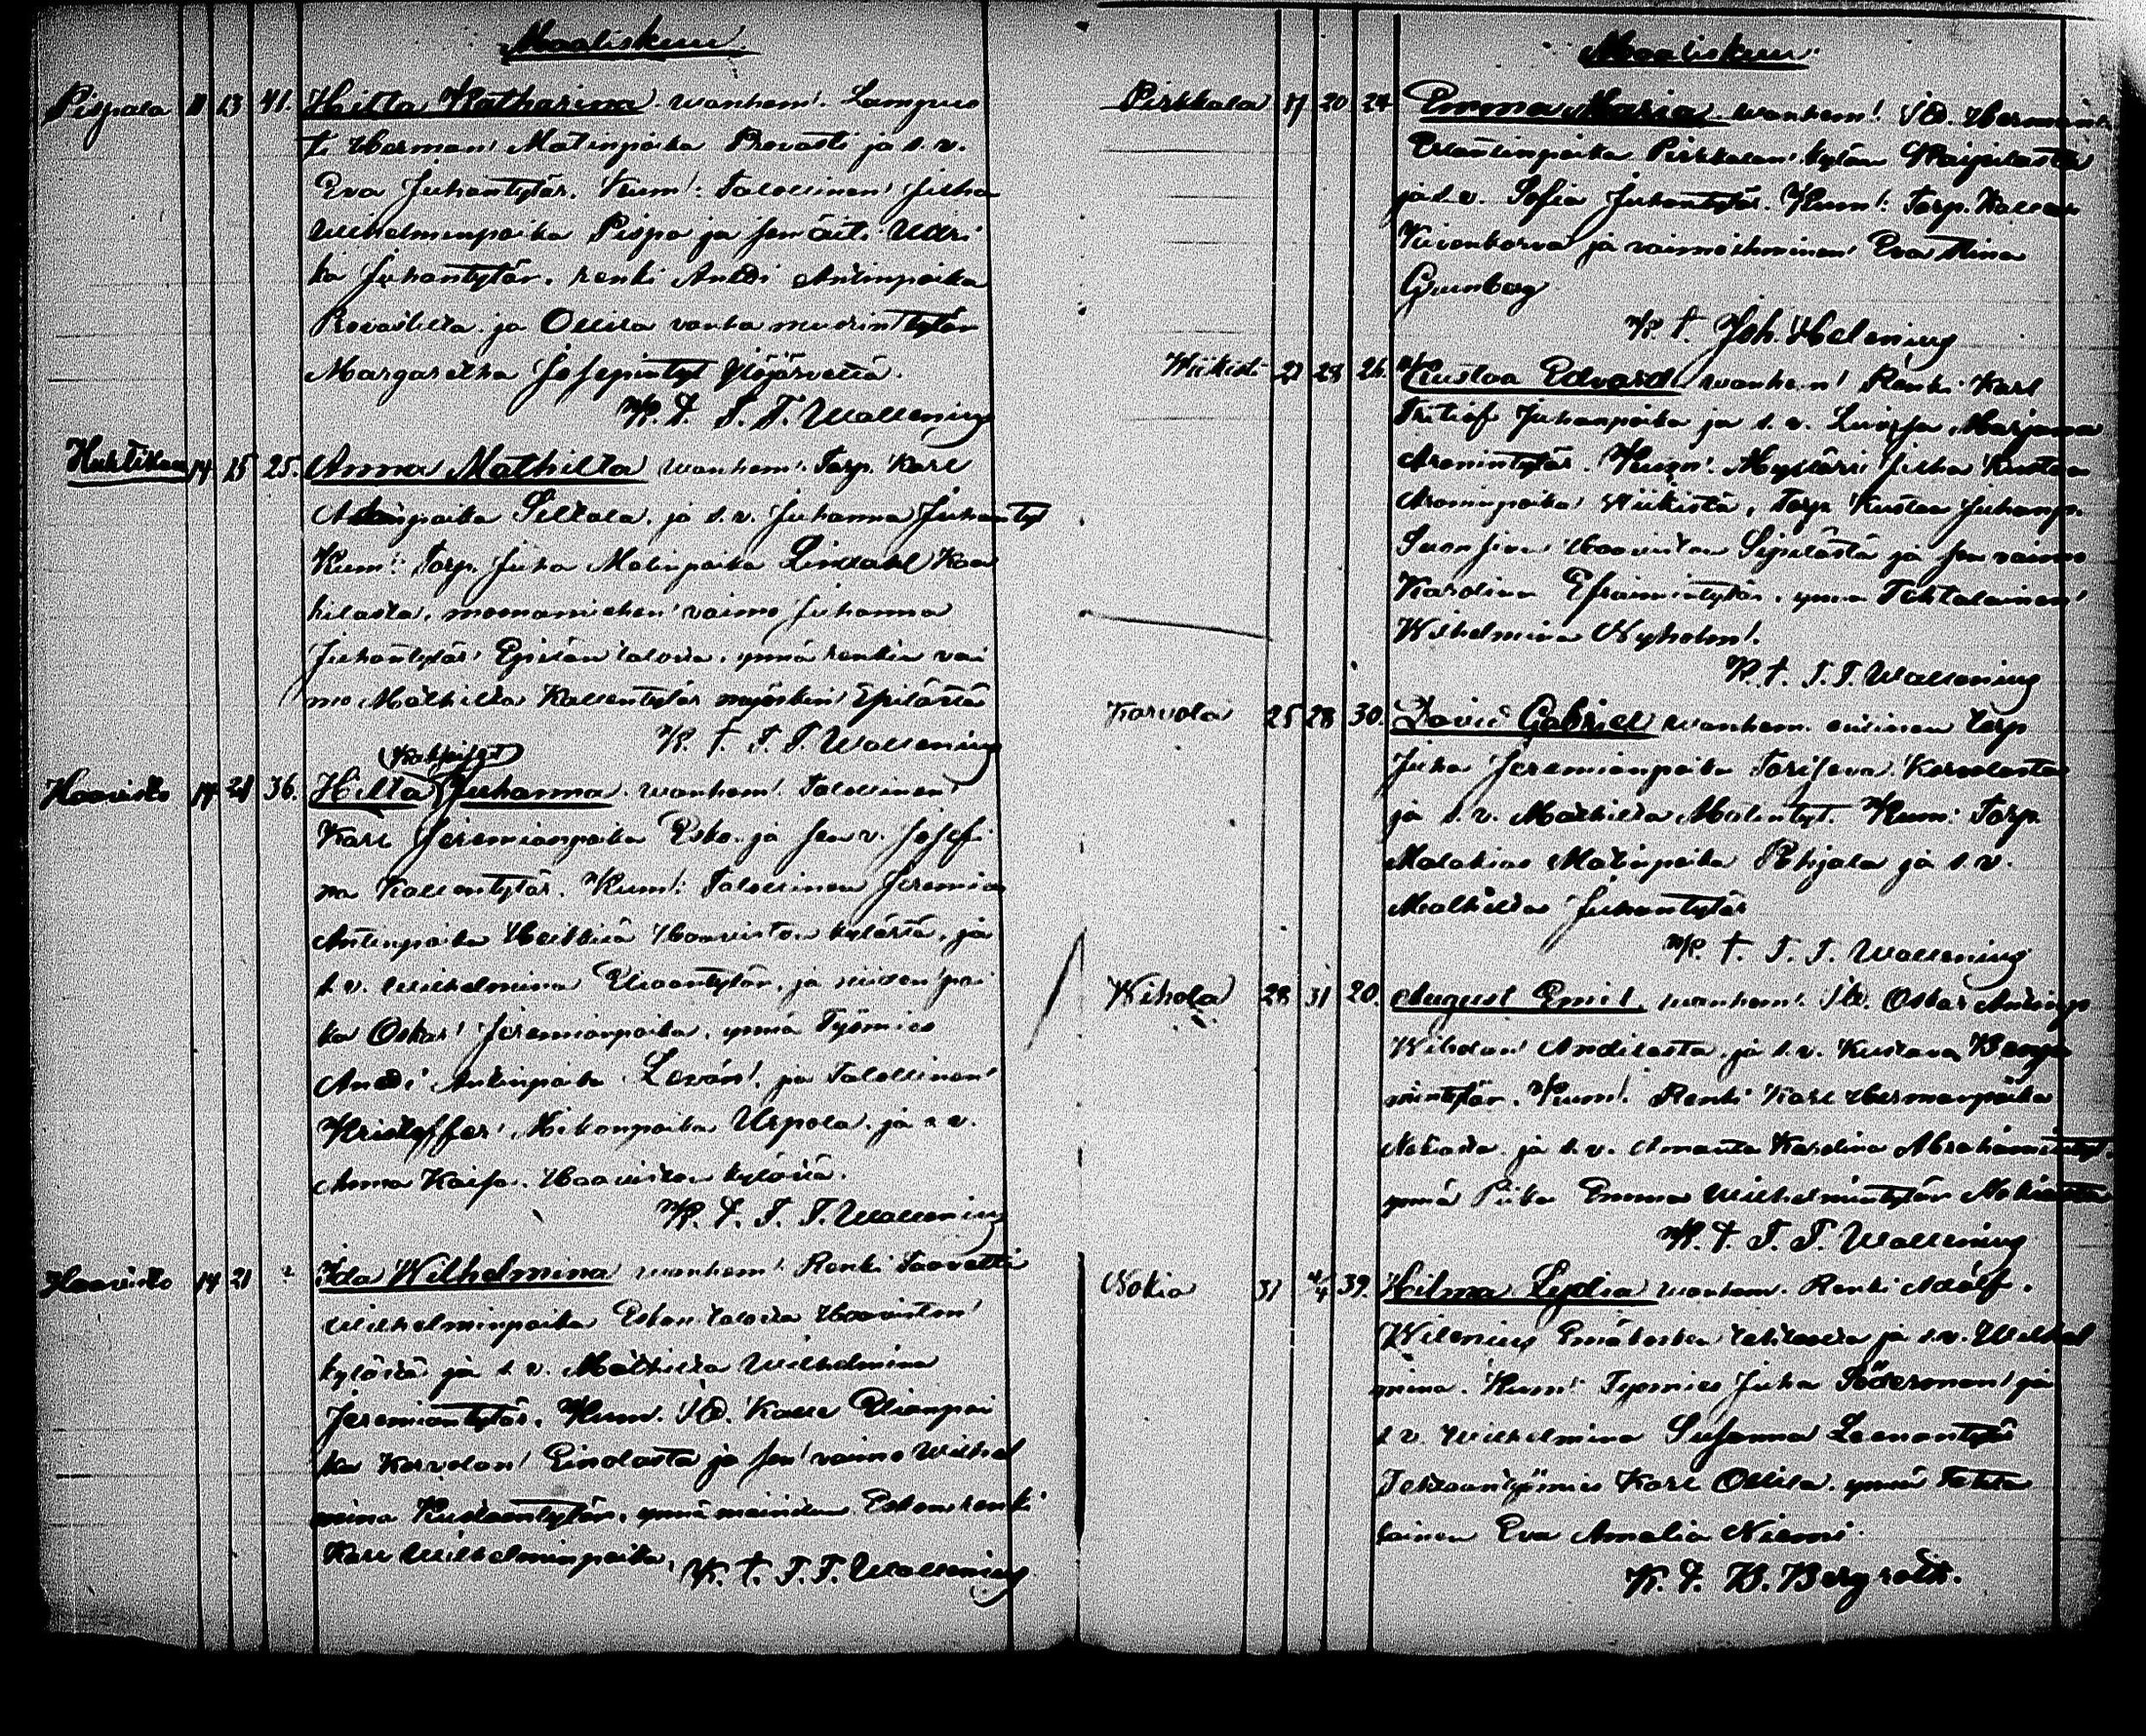 Maaliskuu
Pispala 11 13 41. Hilta Katharina wanhem: Lampuo
ti Herman Matinpoika Provasti ja s. v.
Eva Juhantytär. Kum: Talollinen Juha
Wilhelminpoika Pispa ja sen äiti Ulri
ka Juhantytär, renki Antti Antinpoika
ja Ollila vanha muorin tytär
Margaretha Josepintyt Ylöjärveltä.
K. t. F. F. Wallenius
Huhtikaa 14 15 25. Anna Mathilta wanhem: Torp. Karl
Adaminpoika ja s. v. Juhanna Juhantyt
Kum: Torp. Juha Matinpoika Lindahl Kaa
kilasta, moonamiehen vaimo Juhanna
Juhantytär Epilän talosta, ynnä renkin vai
mo Mathilta Kallentytär myöskin Epilästä
K. t. F. F. Wallenius
(Kaksoiset)
Haavisto 14 21 36. Hilta Juhanna wanhem: Talollinen
Karl Jeremianpoika Esko ja sen v. Josefi
na Kallentytär. Kum: Talollinen Jeremia
Antinpoika Heikkilä Haaviston kylästä, ja
s. v. Wilhelmina Eliaantytär, ja niiden poi
ka Oskar Jeremianpoika, ynnä Työmies
Antti Antinpoika Leván, ja Talollinen
Kristoffer Mikonpoika Urpola, ja s. v.
Anna Kaisa Haaviston kylästä.
K. t. F. F. Wallenius
Haavisto 14 21 " Ida Wilhelmina wanhem: Renki Taavetti
Wilhelminpoika Eskon talosta Haaviston
kylästä ja s. v. Mathilta Wilhelmina
Jeremiantytär. Kum. Kalle Elianpoi
ka Korvolan Einolasta ja sen vaimo Wilhel
mina Kustaantytär, ynnä mainitun Eskon renki
Karl Wilhelminpoika. K. t. F. F. Wallenius
Maaliskuu.
Pirkkala 17 20 24 Emma Maria wanhem: Herman
Erlantinpoika Pirkkalan kylän
ja s. v. Sofia Juhantytär. Kum: Torp. Kalle
Kiivonkorva ja vaimoihminen Eva Stina
Grunberg
K. t. Joh. Helenius
Wiikisti 27 28 26. Kustaa Edvard wanhem: Renki Karl
Fritiof Juhanpoika ja s. v. Lovisa Marjaana
Aronintytär. Kum: Mylläri Juha Kustaa
Arominpoika Wiikistä, Torp. Kustaa Juhanp.
Haaviston Sipilästä ja sen vaimo
Karolina Efraimintytär, ynnä Tehtalainen
Wilhelmina Nyholm.
K. t. F. F. Wallenius
Korvola 25 28 30. David Gabriel wanhem. entinen torp
Juha Jeremianpoika Korvolasta
ja s. v. Mathilta Matintyt. Kum: Torp.
Malakias Matinpoika Pohjala ja s. v.
Mathilta Juhantytär
K. t. F. F. Wallenius
Wihola 28 31 20. August Emil wanhem: Oskar Antinpo
Wiholan Anttilasta ja s. v. Kustava Benja
mintytär. Kum: Renki Karl Hermanpoika
Nokialta ja s. v. Amanta Karolina Abrahamintyt.
ynnä Piika Emma Wilhelmintytär Nokialta
K. t. F. F. Wallenius
Nokia 31 4/4 39. Hilma Lydia wanhem. Renki Adolf
Wilenius Emäkosken tehtaalta ja s. v. Wilhel
mina. Kum: Työmies Juha Söderman ja
s. v. Wilhelmina Susanna Leenantytär
Tehtaantyömies Karl Ollila, ynnä Tehta
lainen Eva Amalia Niemi.
K. t. B. Bergroth.